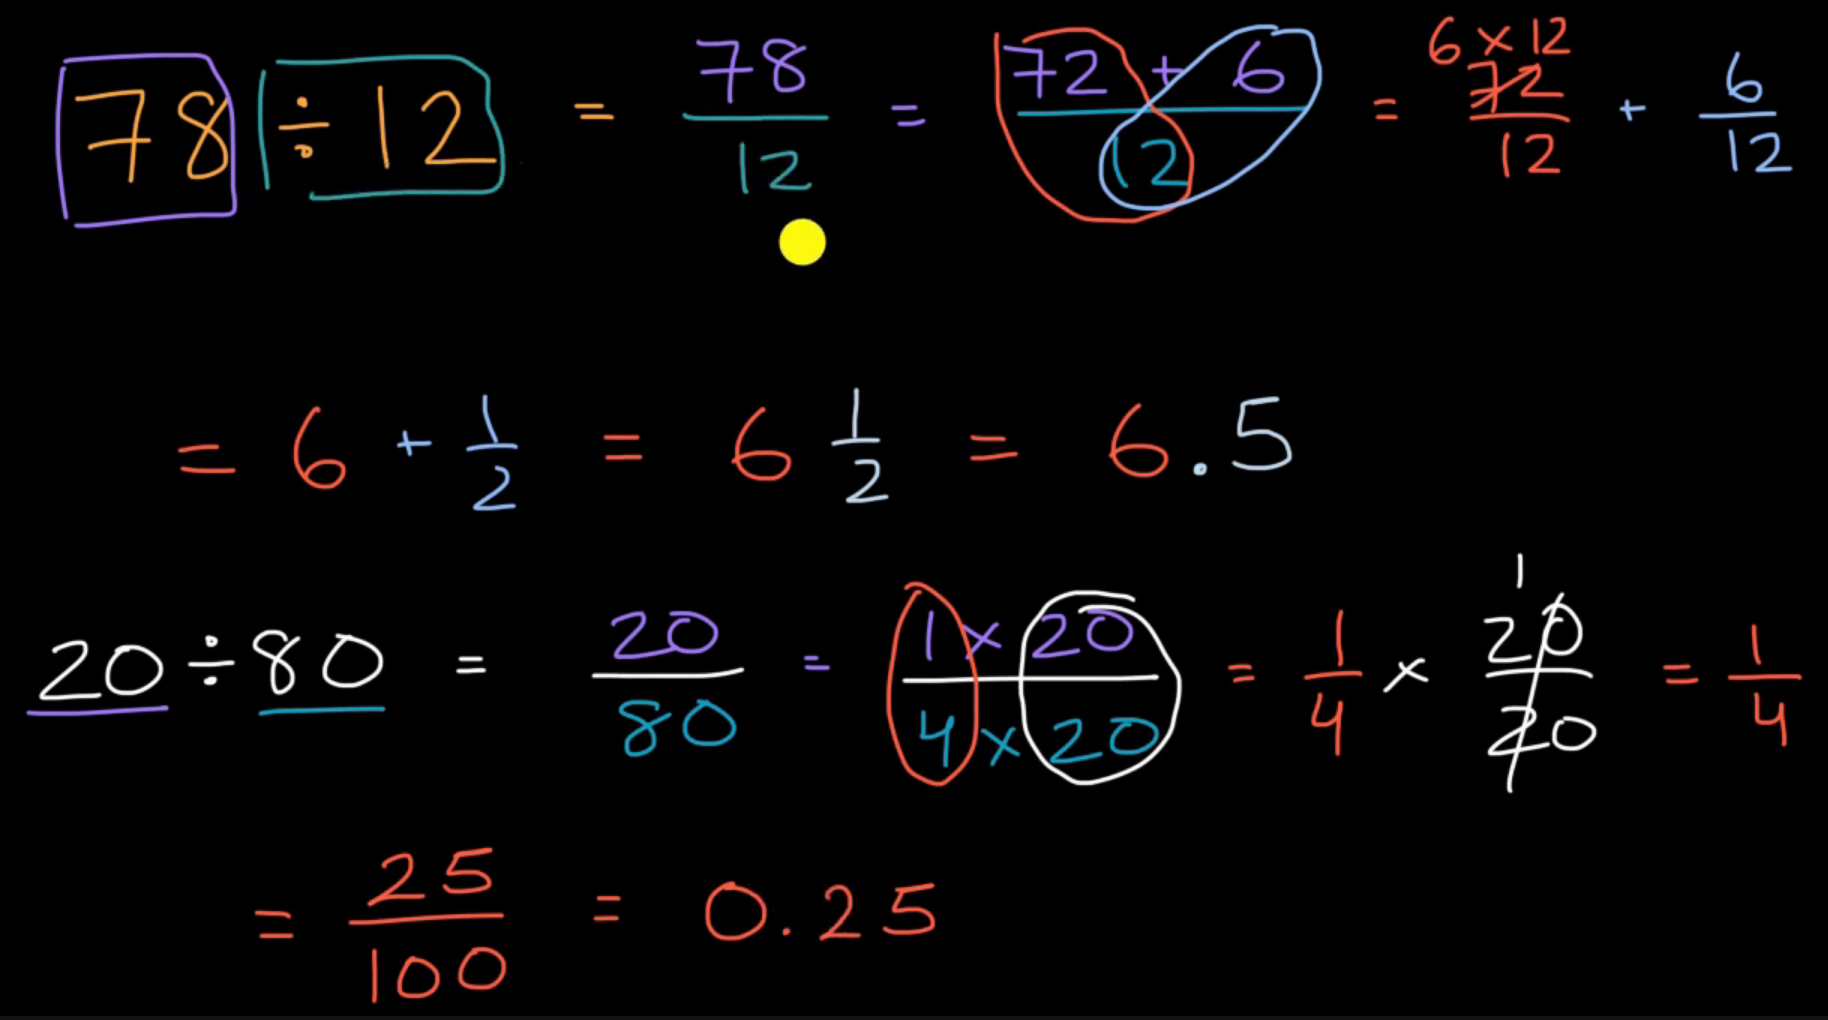 78 ÷ 12 = 78/12 = (72 + 6)/12 = (6 × 12) 72/12 + 6/12
= 6 + 1/2 = 6 1/2 = 6.5
20 ÷ 80 = 20/80 = (1 × 20)/(4 × 20) = 1/4 × 1 20/20 = 1/4
= 25/100 = 0.25